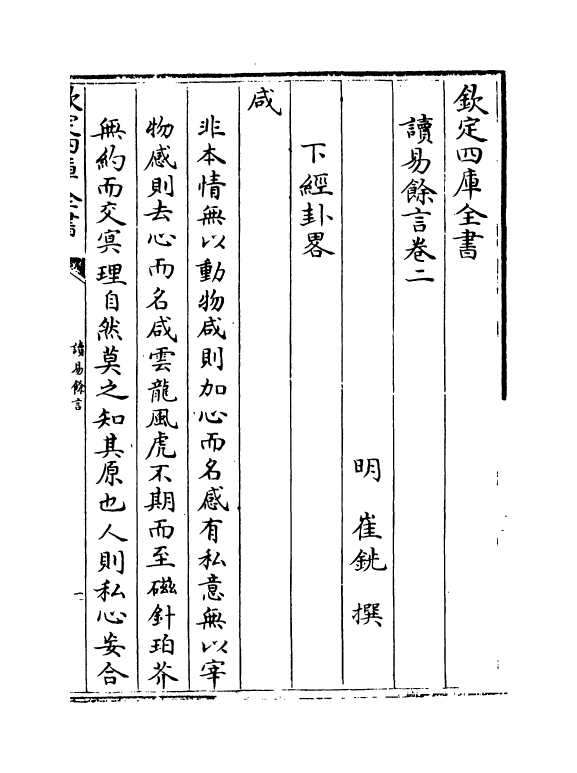 欽定四庫全書
讀易餘言卷二
明 崔銑 撰
下經卦畧
咸
非本情無以動物咸則加心而名感有私意無以宰
物感則去心而名咸雲龍風虎不期而至磁針珀芥
無約而交㝠理自然莫之知其原也人則私心妄合
欽定四庫全書
讀易餘言
一